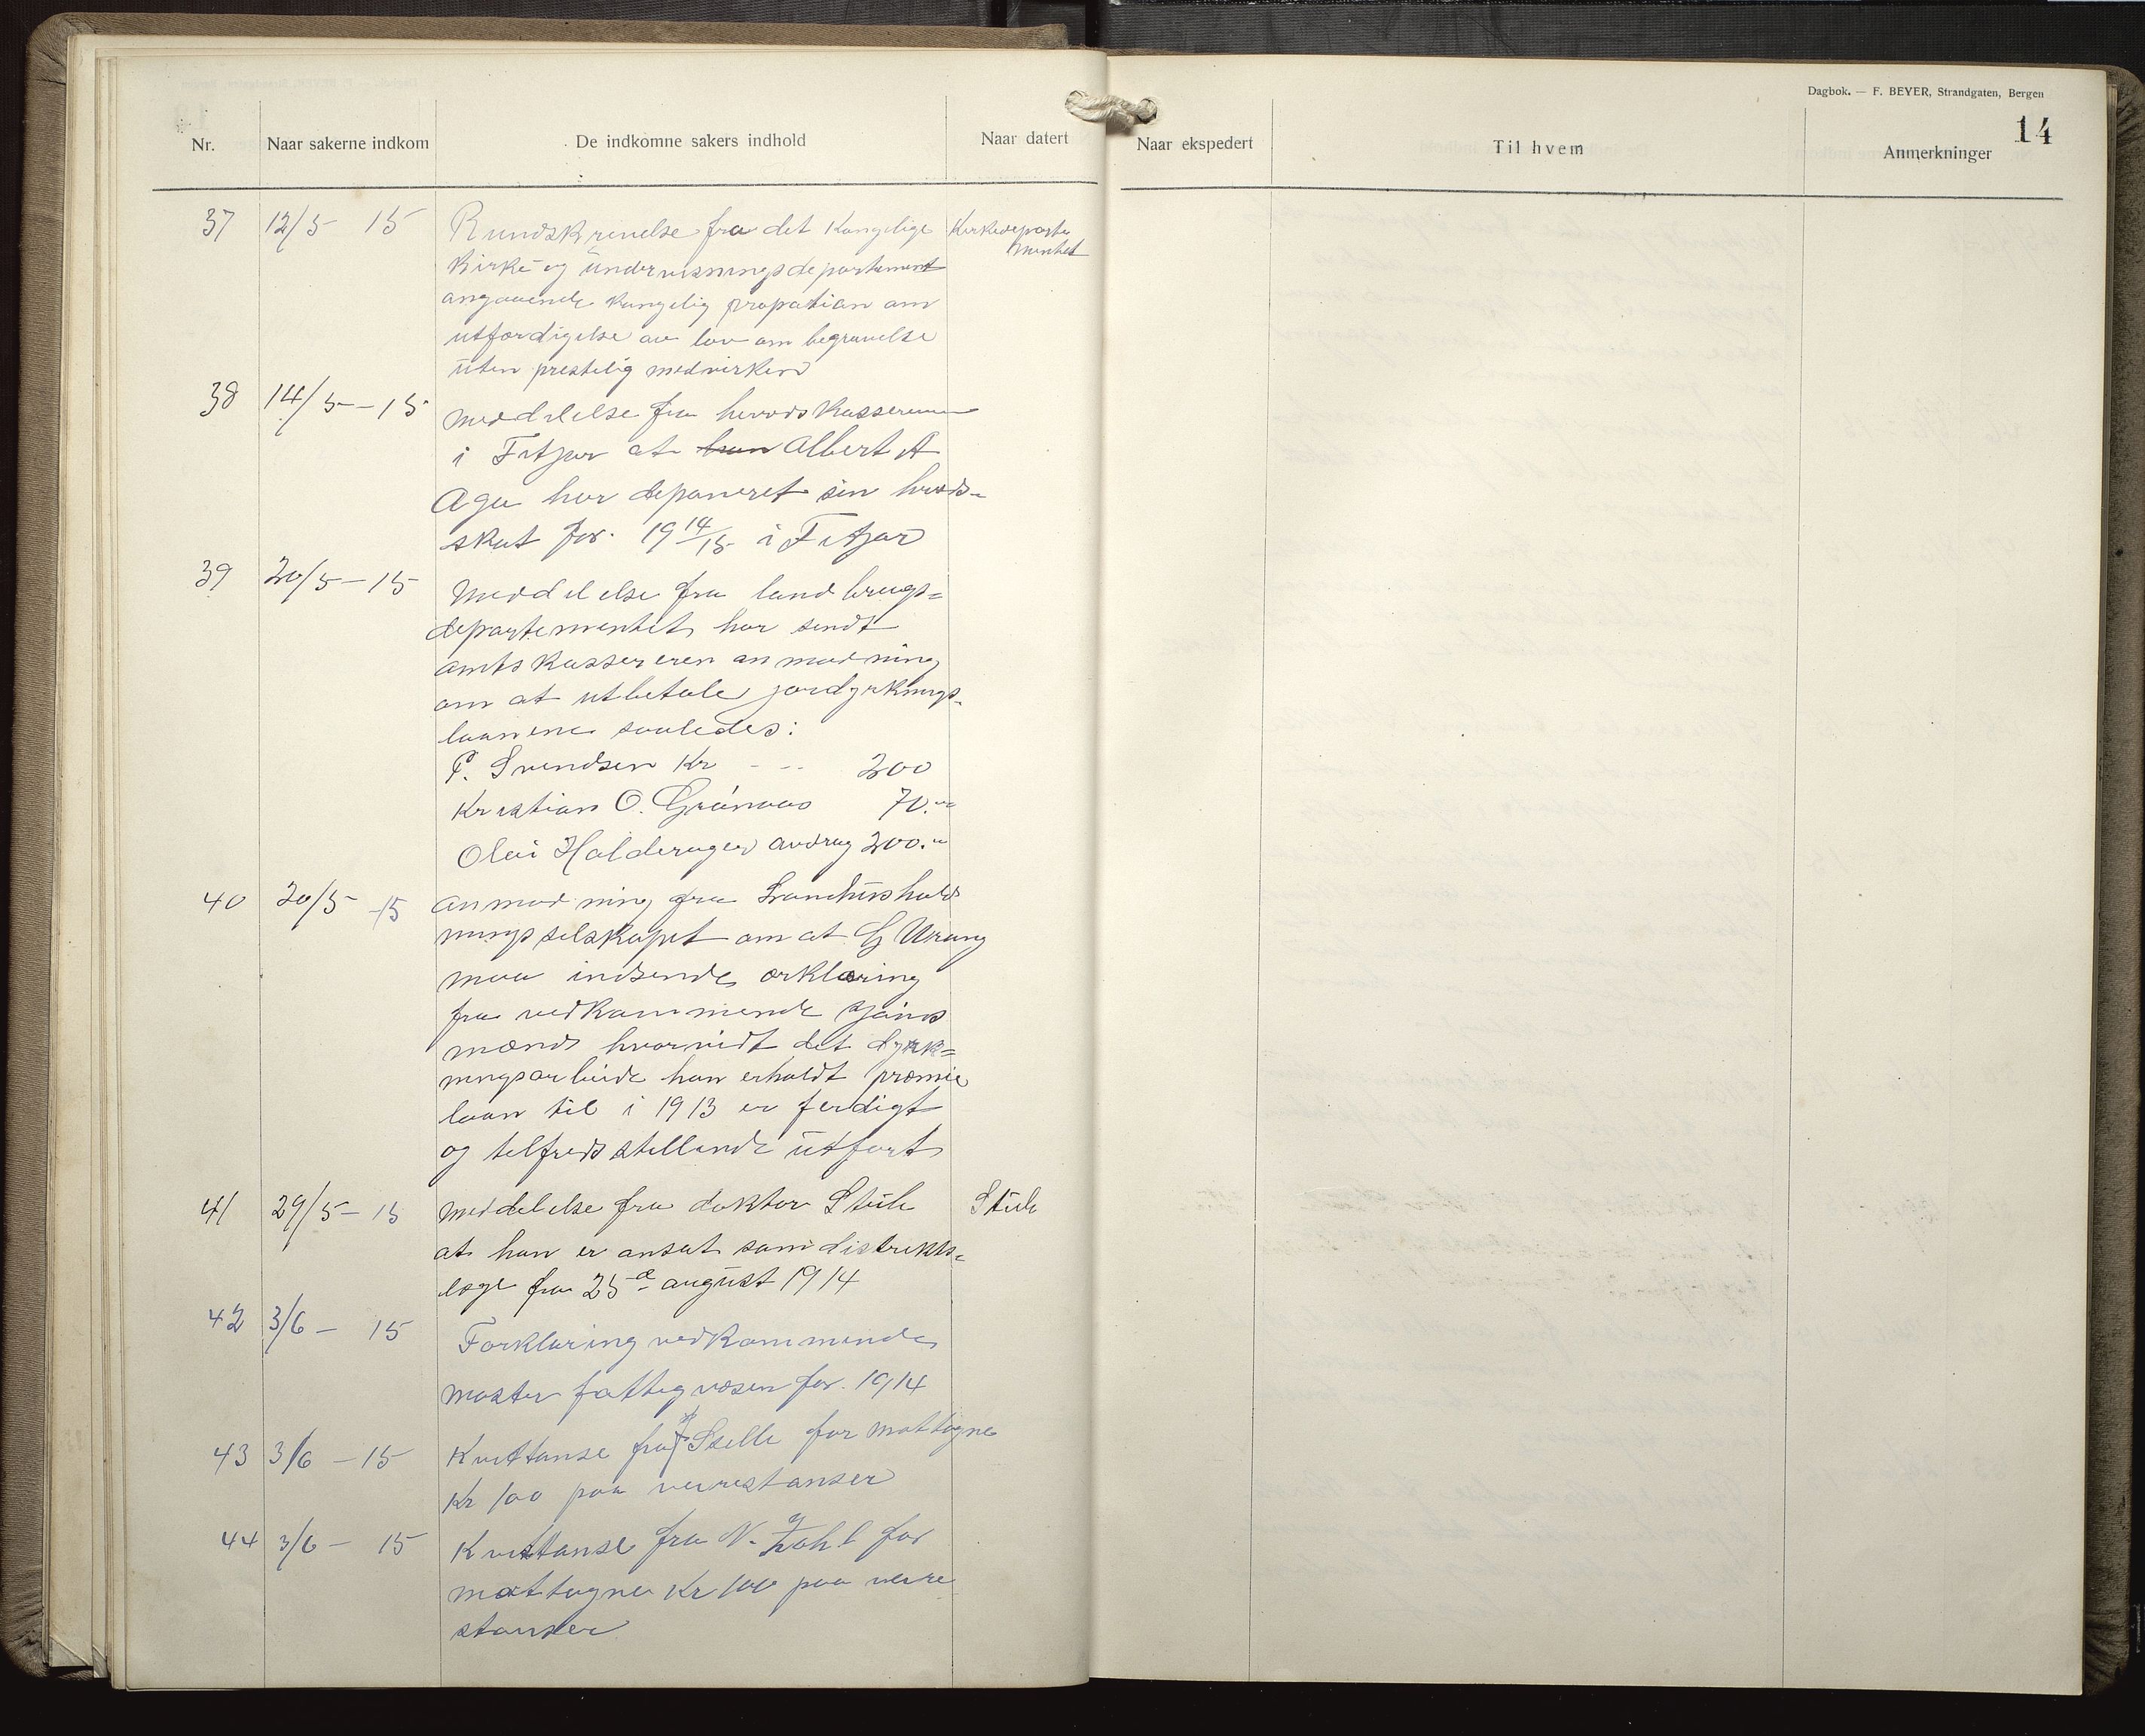 Dagbok. — F. BEYER, Strandgaten, Bergen
14
Nr. Naar sakerne indkom De indkomne sakers indhold Naar datert Naar ekspedert Til hvem Anmerkninger
37 12/5 15 Rundskrivelse fra det Kongelige Kirkedeparte
mentet
Kirke og undervisningsdepartement
angaaende kongelig propotion om
utfordigelse av lov om begravelse
uten prestelig medvirken
38 14/5 - 15 meddelelse fra herredskassereren
i Fitjar at han Albert A
Aga har deponeret sin herreds-
skat for 19 14/15 i Fitjar
39 20/5 - 15 Meddelelse fra landbrugs=
departementet har sendt
amtskassereren anmodning
om at utbetale jordyrknings-
laanene saaledes:
P. Svendsen Kr - -- 200
Kristian O. 70.-
Olai avdrag 200.-
40 20/5 - 15 anmodning fra Landhushold
ningsselskapet om at
maa indsende erklæring
fra vedkommende skjöns
mænd hvorvidt det dyrk=
ningsarbeide han erholdt præmie
laan til i 1913 er ferdigt
og tilfredsstillende utført
41 29/5 - 15 meddelelse fra doktor Stub Stub
at han er ansat som distrikts-
læge fra 25de august 1914
42 3/6 - 15 Forklaring vedkommende
Moster fattigvæsen for 1914
43 3/6 - 15 Kvittanse fra Selle for mottagne
Kr 100 paa veirestanser
44 3/6 - 15 Kvittanse fra N. Zahl for
mottagne Kr 100 paa veire
stanser